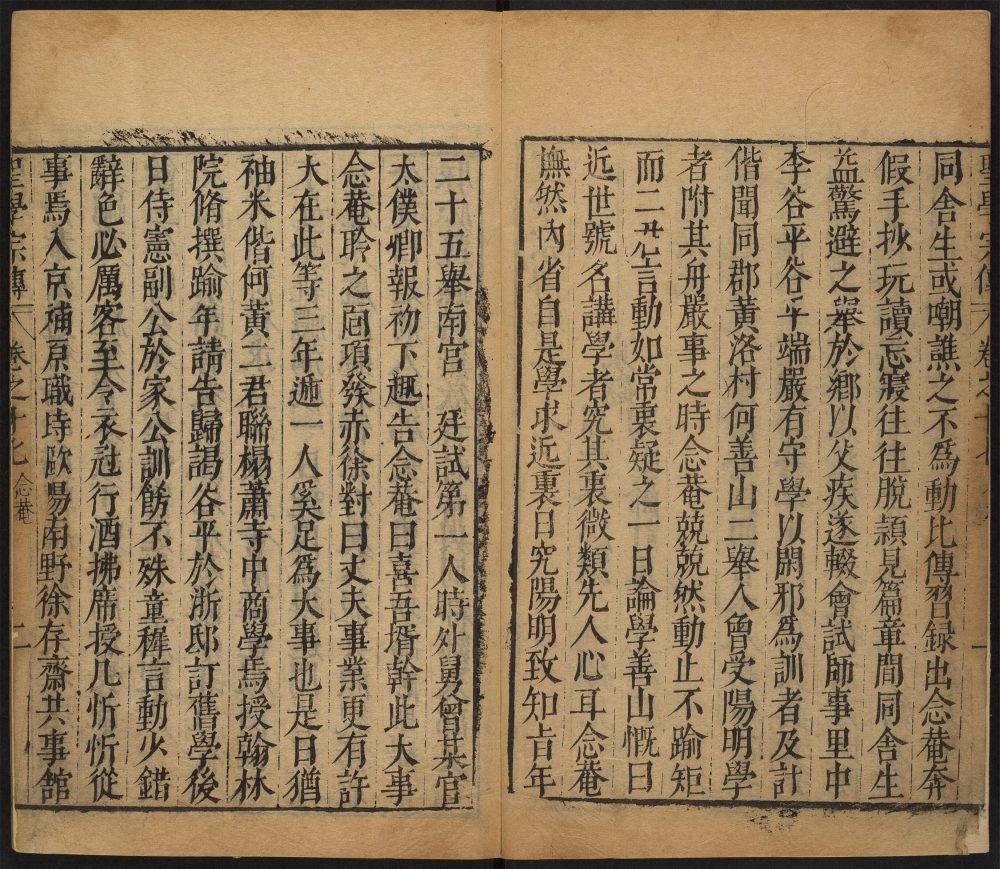 同舍生或嘲譙之不為動比傳習録出念菴奔
假手抄玩讀忘寢往往脫頴見篇章間同舍生
益驚避之舉於鄉以父疾遂輟會試師事里中
李谷平谷平端嚴有守學以閑邪為訓者及計
偕聞同郡黃洛村何善山二舉人曾受陽明學
者附其舟嚴事之時念菴兢兢然動止不踰矩
而二公言動如常衷疑之一日論學善山慨曰
近世號名講學者究其裏微類先人心耳念菴
憮然內省自是學求近裏日究陽明致知旨年
二十五舉南宮　廷試第一人時外舅曾某官
太僕卿報初下趣告念菴曰喜吾壻幹此大事
念菴聆之面項發赤徐對曰丈夫事業更有許
大在此等三年遞一人奚足為大事也是日猶
袖米偕何黃二君聯榻蕭寺中商學焉授翰林
院脩撰踰年請告歸謁谷平於浙邸訂舊學後
日侍憲副公於家公訓飭不殊童穉言動少錯
辭色必厲客至令衣冠行酒拂席授几忻忻從
事焉入京補原職時歐陽南野徐存齋共事館
聖學宗傳　卷之十七　念菴　二